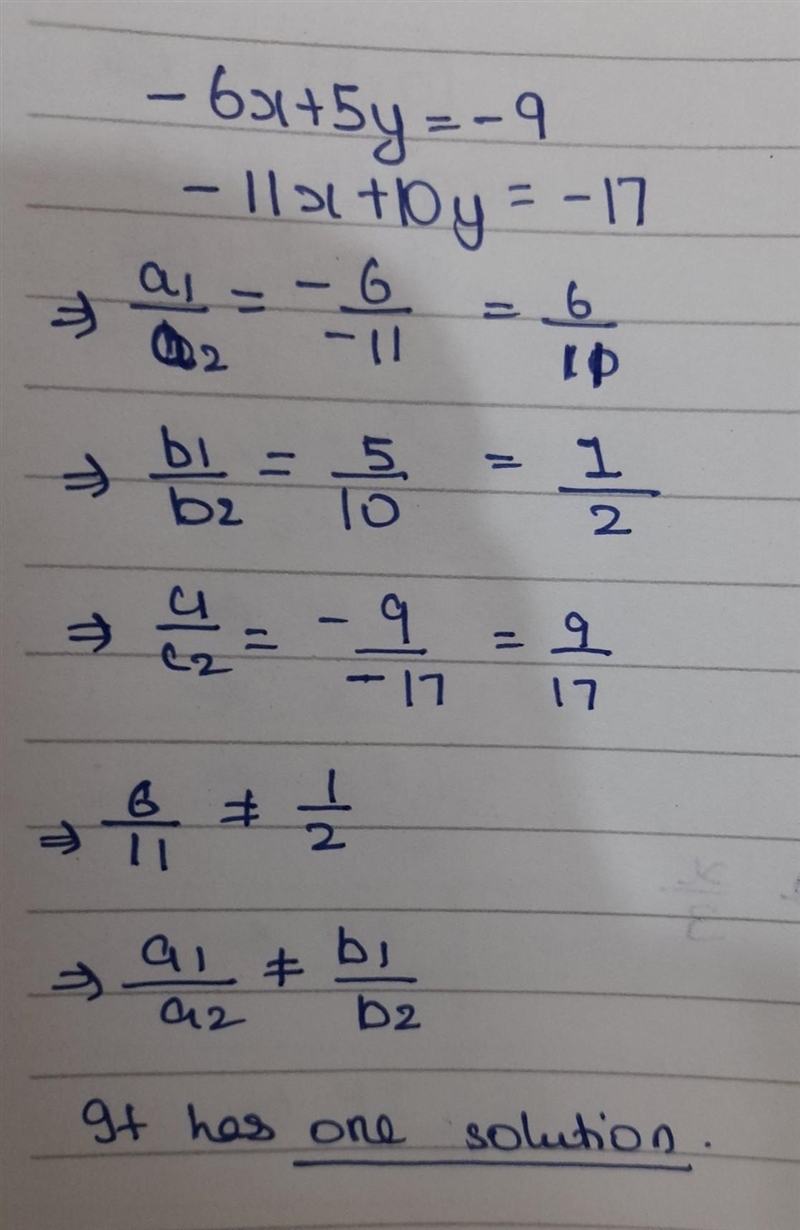 -6x+5y=-9
-11x+10y = -17
⇒ a1/a2 = -6/-11 = 6/11
⇒ b1/b2 = 5/10 = 1/2
⇒ c1/c2 = -9/-17 = 9/17
⇒ 6/11 ≠ 1/2
⇒ a1/a2 ≠ b1/b2
It has one solution.